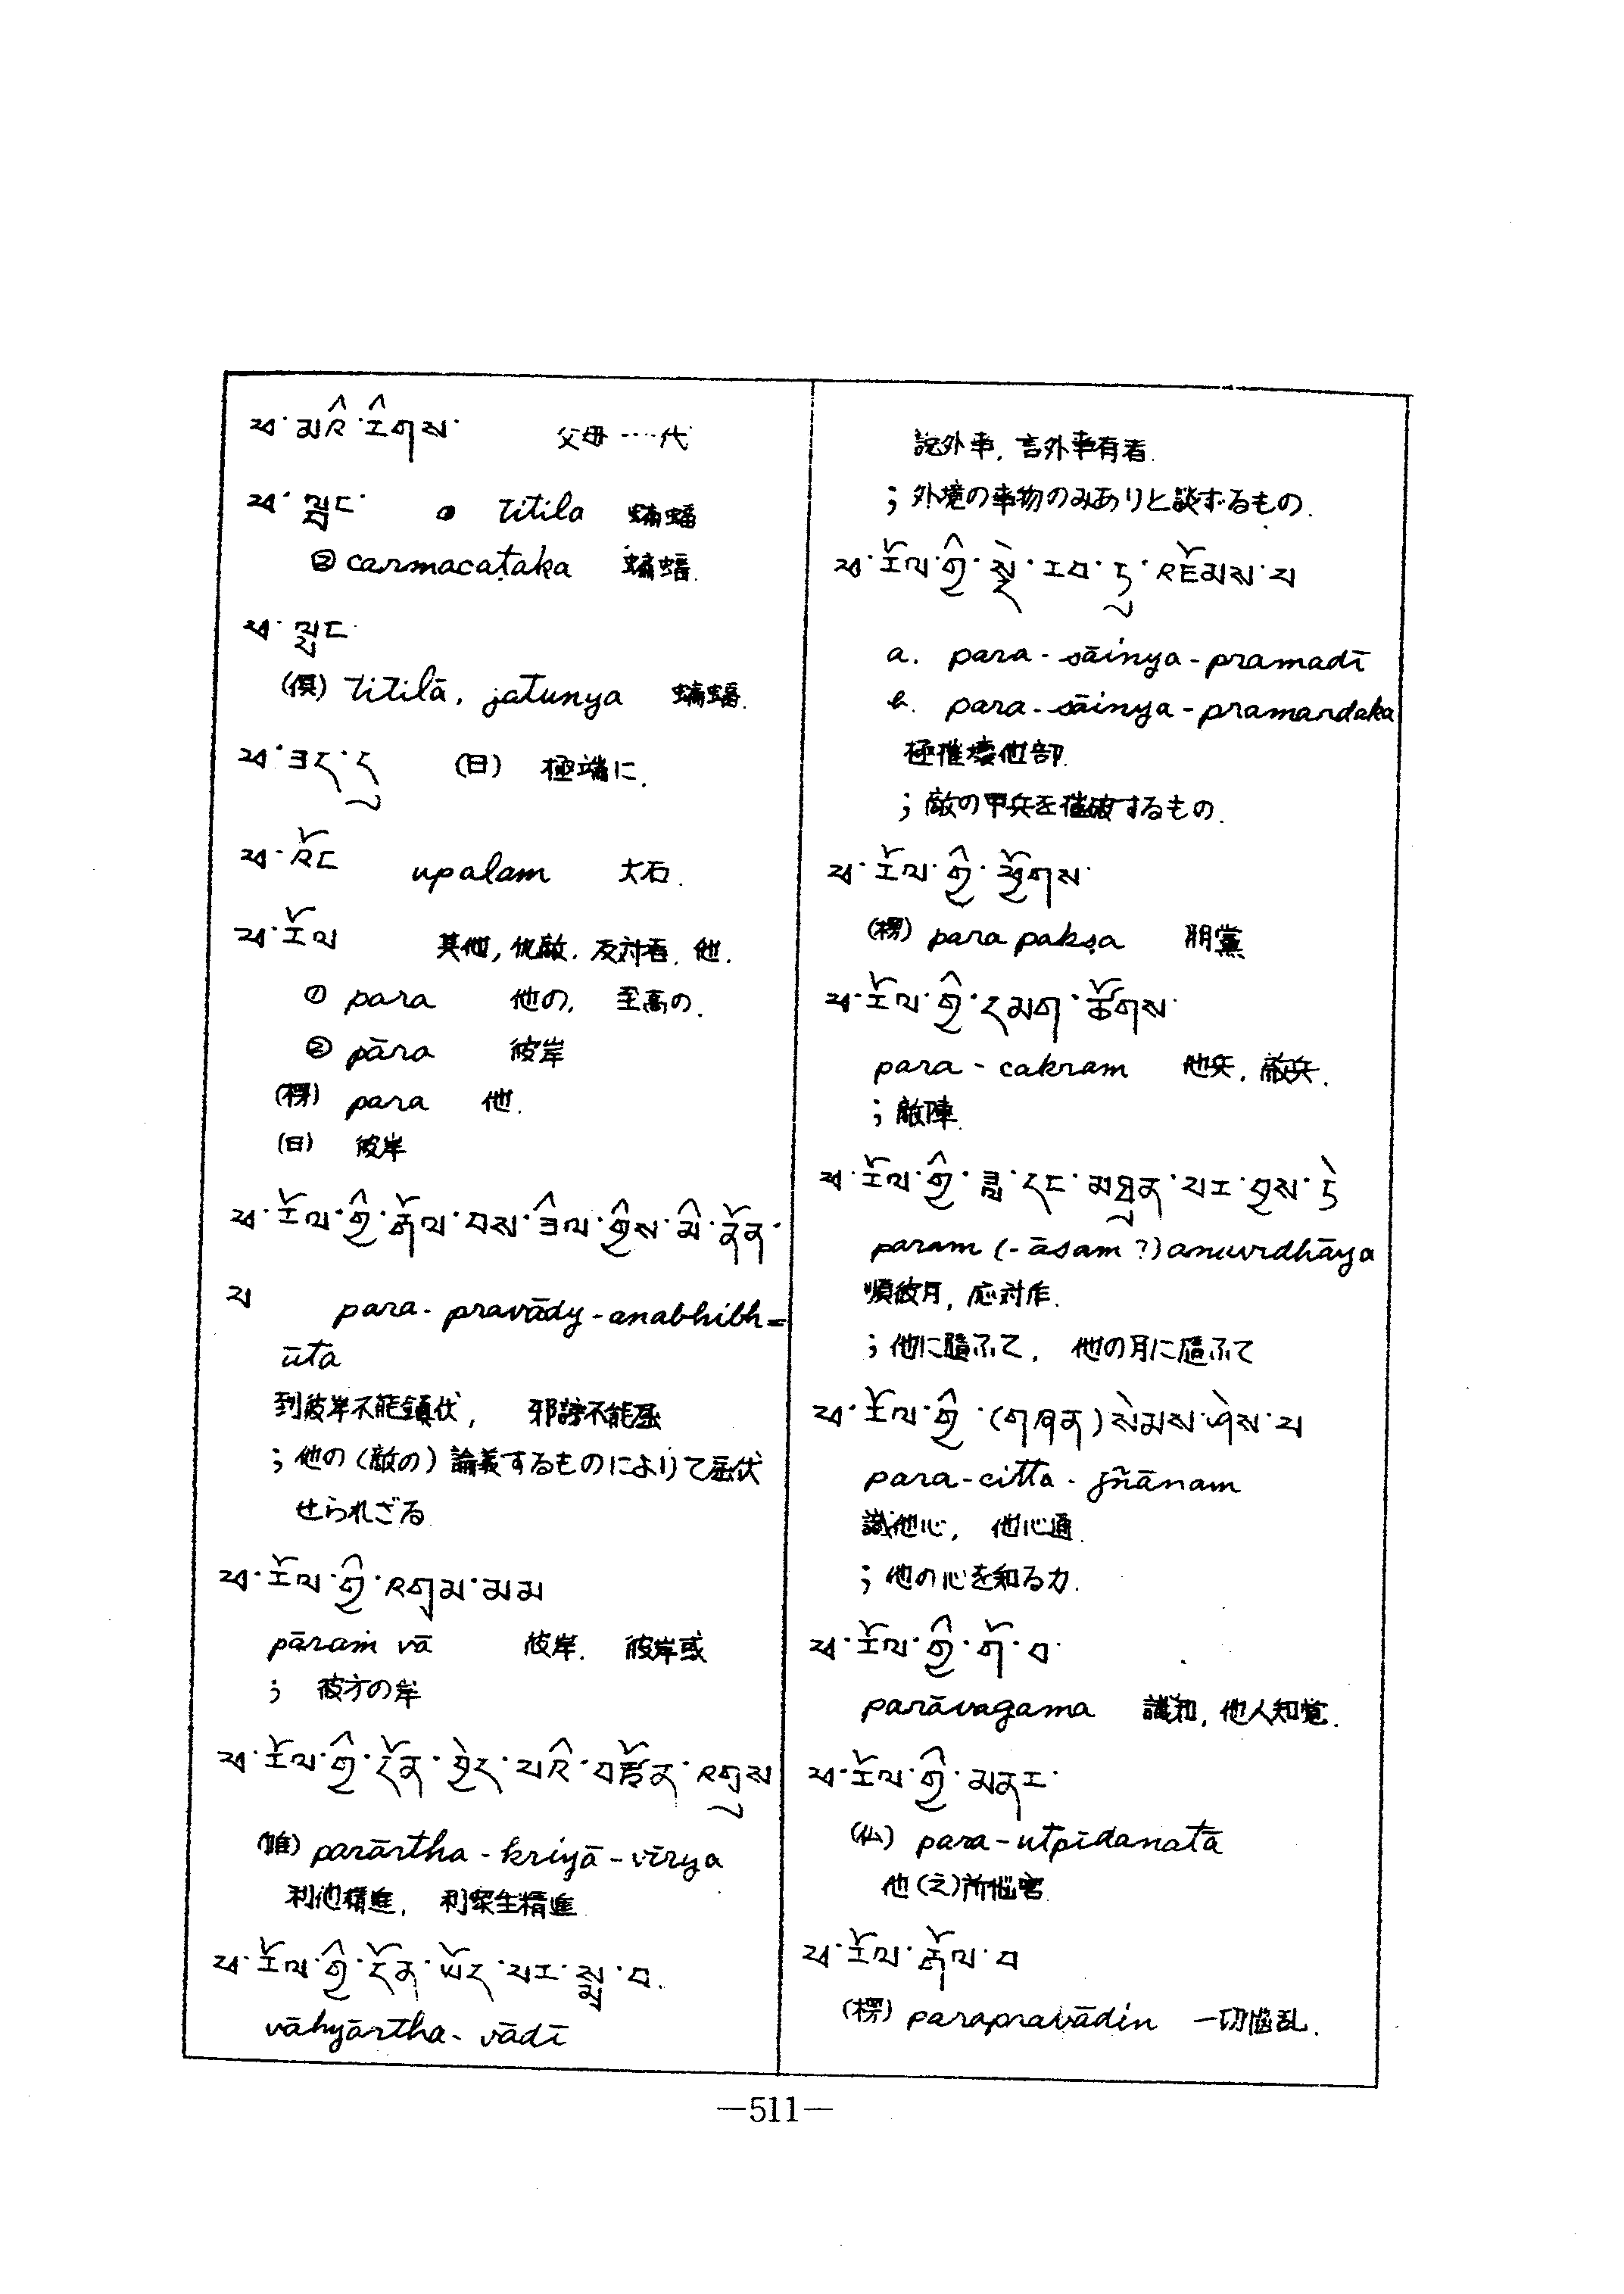 ཕ་མའི་རིགས་ 父母‥‥代
ཕ་ཝང་ ① titila 蝙蝠
② carmacaṭaka 蝙蝠.
ཕ་ལྭང་
(倶) titilā, jatunya 蝙蝠.
ཕ་ཟད་དུ (日) 極端に.
ཕ་འོང upalam 大石.
ཕ་རོལ 其他, 仇敵. 反対者. 他.
① para 他の, 至高の.
② pāra 彼岸
(楞) para 他.
(日) 彼岸
ཕ་རོལ་གྱི་རྒོལ་བས་ཟིལ་གྱིས་མི་ནོན་
པ para-pravādy-anabhibh=
ūta
到彼岸不能鎮伏, 邪謗不能屈
; 他の(敵の)論義するものによりて屈伏
せられざる
ཕ་རོལ་གྱི་འགྲམ་མམ
pāraṁ vā 彼岸. 彼岸或
; 彼方の岸
ཕ་རོལ་གྱི་དོན་བྱེད་པའི་བརྩོན་འགྲུས
(唯) parārtha-kriyā-vīrya
利他精進, 利衆生精進
ཕ་རོལ་གྱི་དོན་ཡོད་པར་སྨྲ་བ.
vāhyārtha-vādī
説外事, 言外事有者.
; 外境の事物のみありと談ずるもの.
ཕ་རོལ་གྱི་སྡེ་རབ་ཏུ་འཇོམས་པ
a. para-sāinya-pramadī
b. para-sāinya-pramardaka
極摧壊他部.
; 敵の甲兵を摧破するもの.
ཕ་རོལ་གྱི་ཕྱོགས་
(楞) para pakṣa 朋黨
ཕ་རོལ་གྱི་དམག་ཚོགས་
para-cakram 他兵, 敵兵.
; 敵陣.
ཕ་རོལ་གྱི་ཟླ་དང་མཐུན་པར་བྱས་ཏེ
param (-āsam ?) anuvrdhāya
順彼月, 応対作.
; 他に随ふて, 他の月に随ふて
ཕ་རོལ་གྱི་(གཞན)སེམས་ཤེས་པ
para-citta-jñānam
識他心, 他心通.
; 他の心を知る力.
ཕ་རོལ་གྱི་གོ་བ་
parāvagama 識知, 他人知覚.
ཕ་རོལ་གྱི་མནར་
(仏) para-utpīdanatā
他(之)所悩害
ཕ་རོལ་རྒོལ་བ
(楞) parapravādin 一切悩乱.
—511—